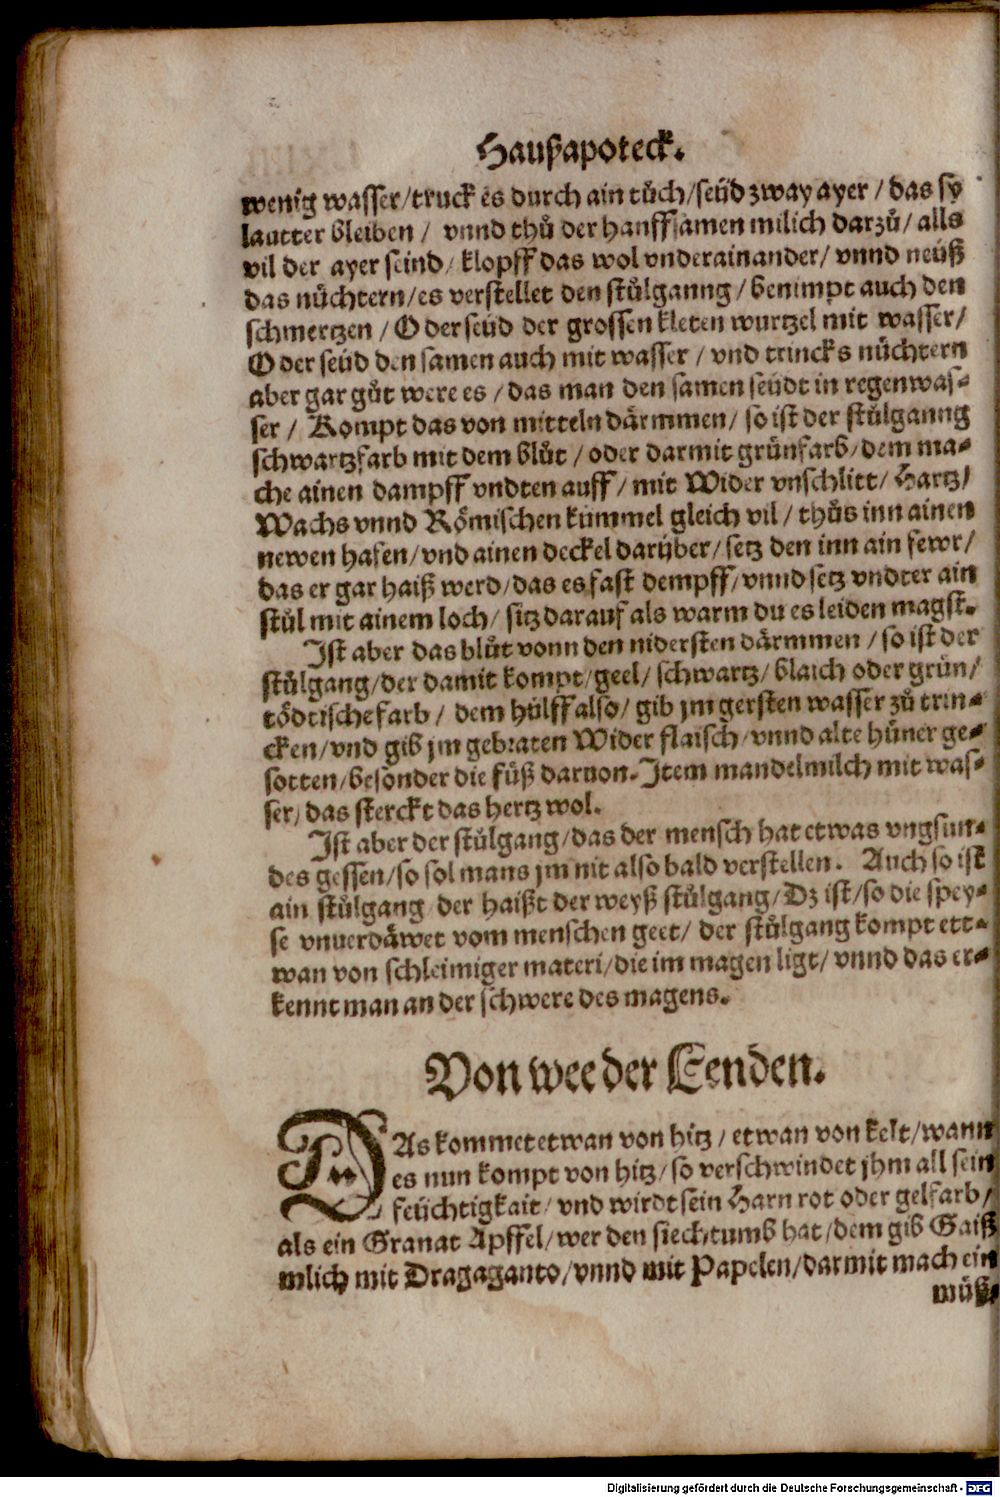 Haußapoteck.
wenig wasser/truck es durch ain tůch/seüd zway ayer / das sy
lautter bleiben / vnnd thů der hanffsamen milich darzů/ alls
vil der ayer seind/ klopff das wol vnderainander/ vnnd neüß
das nůchtern/es verstellet den stůlganng / benimpt auch den
schmertzen / Oder seüd der grossen kleten wurtzel mit wasser/
Oder seüd den samen auch mit wasser / vnd trincks nůchtern
aber gar gůt were es / das man den samen seüdt in regenwas⸗
ser / Kompt das von mitteln därmmen/ so ist der stůlganng
schwartzfarb mit dem blůt / oder darmit grünfarb/dem ma⸗
che ainen dampff vndten auff / mit Wider vnschlitt/ Hartz/
Wachs vnnd Römischen kümmel gleich vil / thůs inn ainen
newen hafen/vnd ainen deckel darüber/ setz den inn ain fewr/
das er gar haiß werd/das es fast dempff/vnnd setz vndter ain
stůl mit ainem loch/ sitz darauf als warm du es leiden magst.
Ist aber das blůt vonn den nidersten därmmen / so ist der
stůlgang/der damit kompt/geel/ schwartz/ blaich oder grün/
tödtische farb / dem hülff also/ gib jm gersten wasser zů trin⸗
cken/vnd gib jm gebraten Wider flaisch/vnnd alte hüner ge⸗
sotten/besonder die füß daruon. Item mandelmilch mit was⸗
ser/das sterckt das hertz wol.
Ist aber der stůlgang/das der mensch hat etwas vngsun⸗
des gessen/so sol mans jm nit also bald verstellen. Auch so ist
ain stůlgang der haißt der weyß stůlgang/Dz ist/so die spey⸗
se vnuerdäwet vom menschen geet/ der stůlgang kompt ett⸗
wan von schleimiger materi/die im magen ligt/ vnnd das er⸗
kennt man an der schwere des magens.
Von wee der Lenden.
DAs kommet etwan von hitz / etwan von kelt/wann
es nun kompt von hitz/so verschwindet jhm all sein
feüchtigkait/ vnd wirdt sein Harn rot oder gelfarb/
als ein Granat Apffel/wer den siechtumb hat/dem gib Gaiß
milch mit Dragaganto/vnnd mit Papelen/darmit mach ein
můß⸗
Digitalisierung gefördert durch die Deutsche Forschungsgemeinschaft - DFG